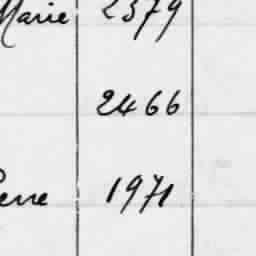 Marie 2379
2466
1971